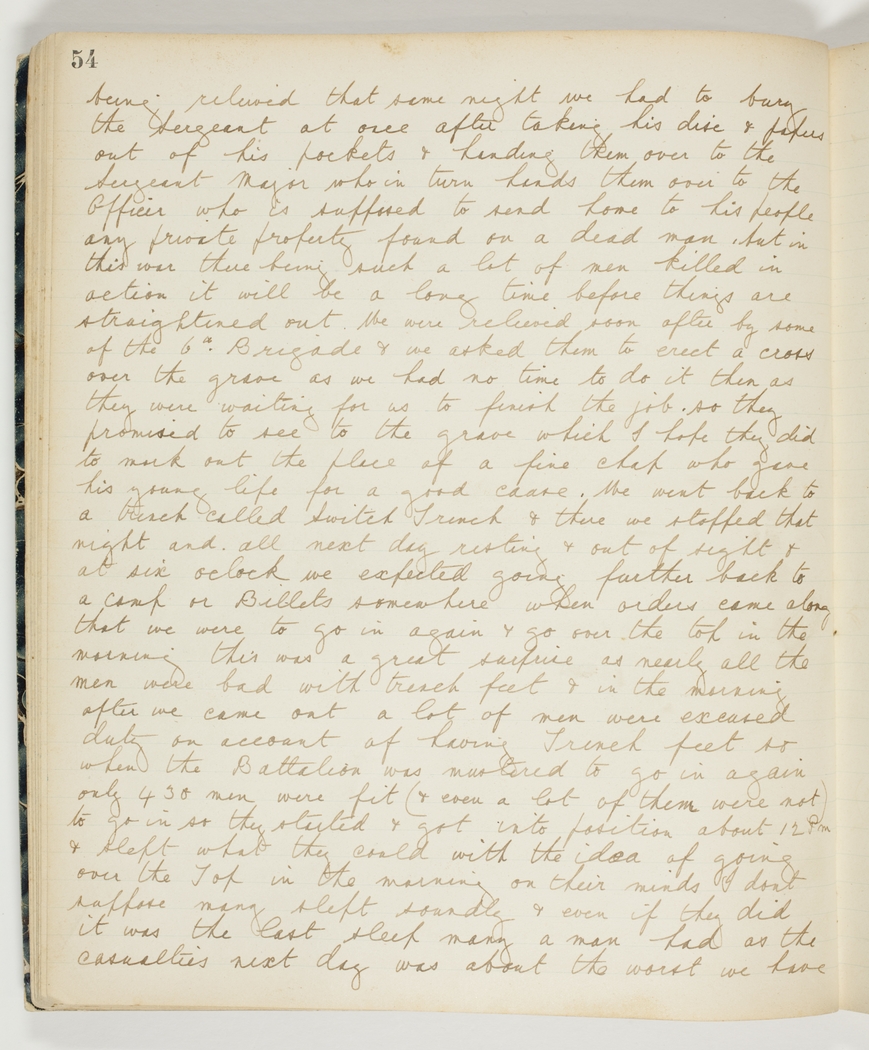 54
being relieved that same night we had to bury
the Sergeant at once after taking his disc & papers
out of his pockets & handing them over to the
Sergeant Major who in turn hands them over to the
Officer who is supposed to send home to his people
any private property found on a dead man. but in
this war there being such a lot of men killed in
action it will be a long time before things are
straightened out. We were relieved soon after by some
of the 6th. Brigade & we asked them to erect a cross
over the grave as we had no time to do it then as
they were waiting for us to finish the job. so they
promised to see to the grave which I hope they did
to mark out the place of a fine chap who gave
his young life for a good cause. We went back to
a trench called Switch Trench & there we stopped that
night and. all next day resting & out of sight &
at six oclock we expected going further back to
a camp or Billets somewhere when orders came along
that we were to go in again & go over the top in the
morning this was a great surprise as nearly all the
men were bad with trench feet & in the morning
after we came out a lot of men were excused
duty on account of having Trench feet so
when the Battalion was mustered to go in again
only 430 men were fit (& even a lot of them were not)
to go in so they started & got into position about 12 Pm
& slept what they could with the idea of going
over the Top in the morning on their minds I dont
suppose many slept soundly & even if they did
it was the last sleep many a man had as the
casualties next day was about the worst we have